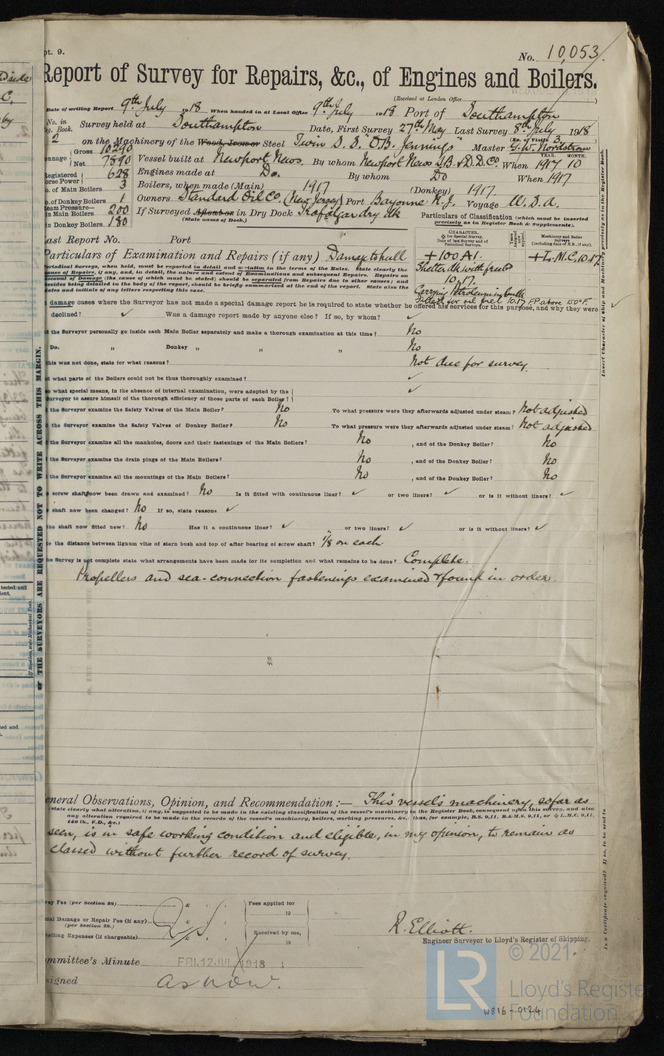 pt. 9.
No. 10,053
Report of Survey for Repairs, &c., of Engines and Boilers.
(Received at London Office
Date of writing Report 9th July 1918 When handed in at Local Office 9th July 1918 Port of Southampton
No. in Reg. Book. Survey held at Southampton Date, First Survey 27th May Last Survey 8th July 1918
2 on the Machinery of the Wood, Iron or Steel Twin S.S. O.B. Jennings Master G.W. Nordstrom
Tonnage Gross 10290 Net 7890 Vessel built at Newport News. By whom Newport News S.B. & D.D. Co. When 1917 10
YEAR. MONTH.
Registered Horse Power 628 Engines made at Do. By whom Do When 1917
No. of Main Boilers 3 Boilers, when made (Main) 1917 (Donkey) 1917
No. of Donkey Boilers 1 Owners Standard Oil Co. (New Jersey) Port Bayonne N.J. Voyage U.S.A.
Steam Pressure in Main Boilers 200 If Surveyed Afloat or in Dry Dock Trafalgar dry dk
(State name of Dock.)
in Donkey Boilers 180
Particulars of Classification (which must be inserted precisely as in Register Book & Supplements).
Last Report No. Port
Particulars of Examination and Repairs (if any) Damage to hull
+100A1. +L.M.C. 10.17
Shelter dk with freeb'd
10.17.
Carrying Petroleum in bulk
Fitted for oil fuel 10.17 FP above 150°F.
damage cases where the Surveyor has not made a special damage report he is required to state whether he offered his services for this purpose, and why they were
declined? ✓ Was a damage report made by anyone else? If so, by whom? ✓
the Surveyor personally go inside each Main Boiler separately and make a thorough examination at this time? No
Do. " Donkey " " " No
this was not done, state for what reasons? Not due for survey.
what parts of the Boilers could not be thus thoroughly examined? ✓
what special means, in the absence of internal examination, were adopted by the
Surveyor to assure himself of the thorough efficiency of those parts of each Boiler? ✓
the Surveyor examine the Safety Valves of the Main Boiler? No To what pressure were they afterwards adjusted under steam? Not adjusted
the Surveyor examine the Safety Valves of Donkey Boiler? No To what pressure were they afterwards adjusted under steam? Not adjusted
the Surveyor examine all the manholes, doors and their fastenings of the Main Boilers? No , and of the Donkey Boiler? No
the Surveyor examine the drain plugs of the Main Boilers? No , and of the Donkey Boiler? No
the Surveyor examine all the mountings of the Main Boilers? No , and of the Donkey Boiler? No
screw shaft now been drawn and examined? No Is it fitted with continuous liner? ✓ or two liners? ✓ or is it without liners? ✓
shaft now been changed? No If so, state reasons ✓
the shaft now fitted new? No Has it a continuous liner? ✓ or two liners? ✓ or is it without liners? ✓
the distance between lignum vitæ of stern bush and top of after bearing of screw shaft? 1/8 on each
the Survey is not complete state what arrangements have been made for its completion and what remains to be done? Complete.
Propellers and sea-connection fastenings examined & found in order
General Observations, Opinion, and Recommendation:— This vessel's machinery, so far as
seen, is in safe working condition and eligible, in my opinion, to remain as
classed without further record of survey.
Survey Fee (per Section 28)
Special Damage or Repair Fee (if any)
(per Section 28.)
Travelling Expenses (if chargeable)
Fees applied for
19
Received by me,
19
R. Elliott.
Engineer Surveyor to Lloyd's Register of Shipping.
Committee's Minute FRI. 12 JUL 1918
Assigned as now.
OF THE SURVEYORS ARE REQUESTED NOT TO WRITE ACROSS THIS MARGIN.
LR
© 2021
Lloyd's Register
Foundation
W816-0124